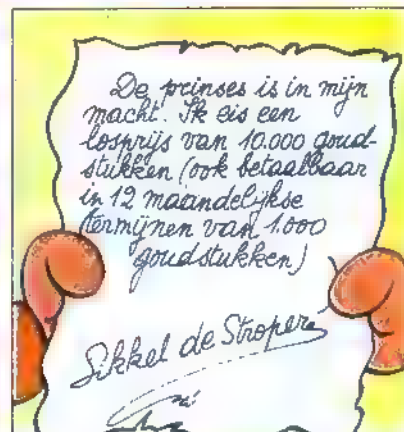 De prinses is in mijn
macht. Ik eis een
losprijs van 10.000 goud-
stukken (ook betaalbaar
in 12 maandelijkse
termijnen van 1.000
goudstukken)
Sikkel de Stroper